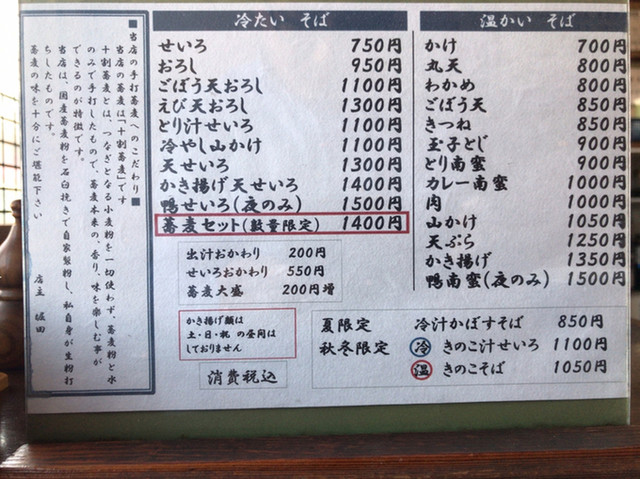 ■当店の手打蕎麦へのこだわり■
当店の蕎麦は「十割蕎麦」です
十割蕎麦とは、つなぎとなる小麦粉を一切使わず、蕎麦粉と水
のみで手打したもので、蕎麦本来の、香り、味を楽しむ事が
できるのが特徴です。
当店は、国産蕎麦粉を石臼挽きで自家製粉し、私自身が生粉打
ちしたものです。
蕎麦の味を十分にご堪能下さい
店主 堀田
冷たい そば
せいろ 750円
おろし 950円
ごぼう天おろし 1100円
えび天おろし 1300円
とり汁せいろ 1100円
冷やし山かけ 1100円
天せいろ 1300円
かき揚げ天せいろ 1400円
鴨せいろ(夜のみ) 1500円
蕎麦セット(数量限定) 1400円
出汁おかわり 200円
せいろおかわり 550円
蕎麦大盛 200円増
かき揚げ類は
土・日・祝 の昼間は
しておりません
消費税込
温かい そば
かけ 700円
丸天 800円
わかめ 800円
ごぼう天 850円
きつね 850円
玉子とじ 900円
とり南蜜 900円
カレー南蜜 1000円
肉 1000円
山かけ 1050円
天ぷら 1250円
かき揚げ 1350円
鴨南蜜(夜のみ) 1500円
夏限定 冷汁かぼすそば 850円
秋冬限定 冷 きのこ汁せいろ 1100円
温 きのこそば 1050円